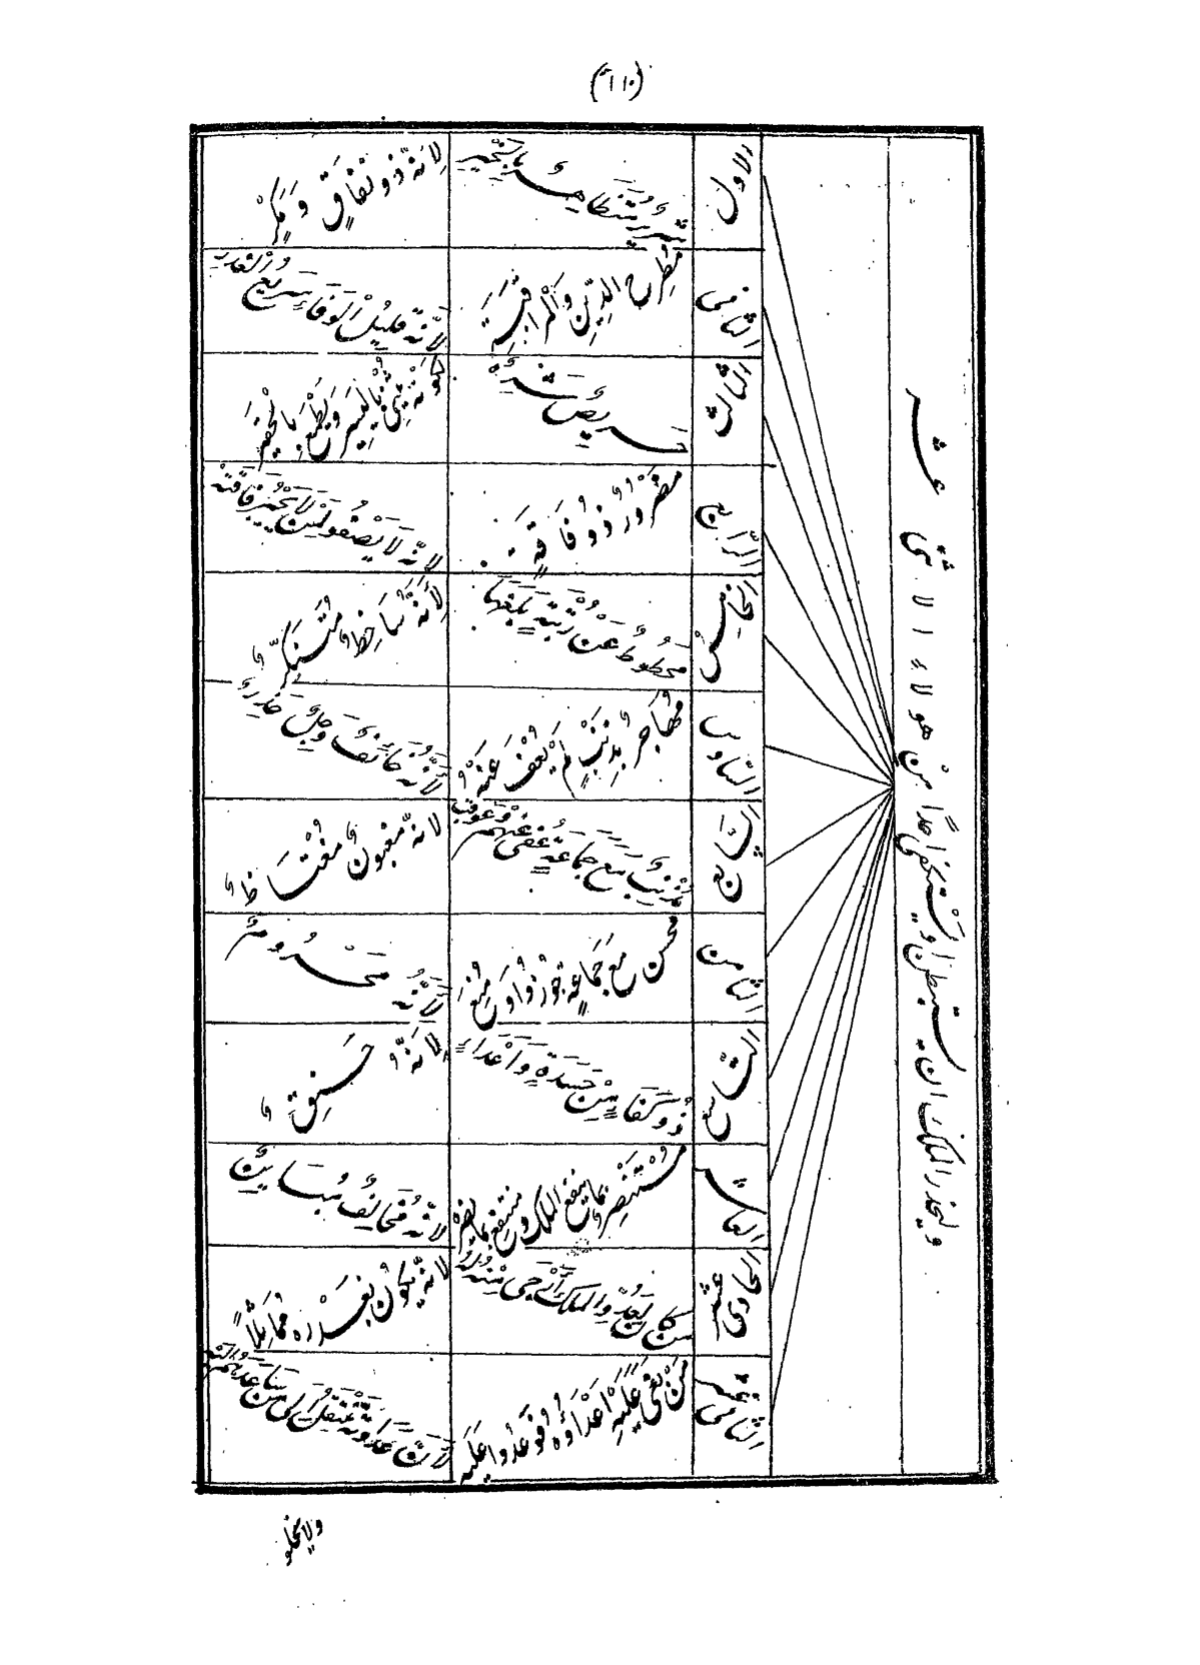 (١١٠)
وليحذر الملك ان يستبطن او يستكفي احدًا مِنْ هولاء الاثنى عشر
الاول شِرِّيرٌ مُتَظَاهِرٌ بِالْخَيْرِ لِاَنَّهُ ذُو نِفَاقٍ وَ مَكْرٍ
الثانى مُطَّرِحُ الدِّيْنِ وَالْمُرَاقَبَةِ لِاَنَّهُ قَلِيْلُ الْوَفَاءِ سَرِيْعُ الْغَدْرِ
الثالث حَرِيْصٌ شَرِهٌ كَوْنَهُ يَبِيْعُ بِالْيَسِيْرِ وَيَطْمَعُ بِالْحَقِيْرِ
الرَّابع مَضْرُوْرٌ ذُوْ فَاقَةٍ لِاَنَّهُ لَا يَصْفُو لِمَنْ لَا يَجْبُرُ فَاقَتَهُ
الخامِسُ مَحْطُوْطٌ عَنْ رُتْبَةٍ بَلَغَهَا لِاَنَّهُ سَاخِطٌ مُتَنَكِّرٌ
السَّادس مُهَاجِرٌ بِذَنْبٍ لَمْ يُعْفَ عَنْهُ لِاَنَّهُ خَائِفٌ وَجِلٌ حَذِرٌ
السَّابع مُذْنِبٌ مَعَ جَمَاعَةٍ عُفِيَ عَنْهُمْ وَعُوقِبَ لانَّهُ مَغْبُوْنٌ مُغْتَاظٌ
الثامن محسن مع جَمَاعَةٍ جُوْزُوْا وَ مُنِعَ لِاَنَّهُ مَحْرُومٌ
التَّاسع ذُوْ كَفَاءَةٍ بَيْنَ حَسَدَةٍ وَاَعْدَاءٍ لِاَنَّهُ حَنِقٌ
العاشر مُسْتَنْصِرٌ بِمَا يَنْفَعُ الملك و مُنْتَفِعٌ بِمَا يَضُرُّهُ لِاَنَّهُ مُخَالِفٌ مُبَايِنٌ
الحادى عشر مَنْ كَانَ لِعَدُوِّ الملك اَرْجىٰ مِنْهُ لَهُ لِاَنَّهُ يَكُوْنُ بِغَدْرِهِ مُمَايِلًا
الثانى عشر مَنْ بَغىٰ عَلَيْهِ اَعْدَاؤُهُ فَوَعَدُوا عَلَيْهِ لِاَنَّ عَدَاوَتَهُ تَنْتَقِلُ اِلٰى مَنْ سَاعَدَهُمْ
ولايخلو